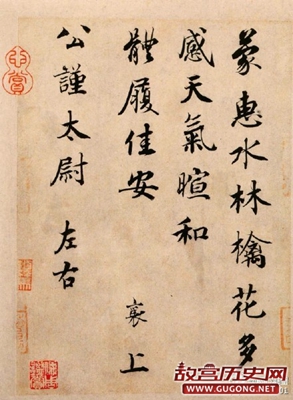 蒙惠水林檎花多
感天氣暄和
體履佳安
襄上
公謹太尉 左右
故宫历史网
WWW.GUGONG.NET